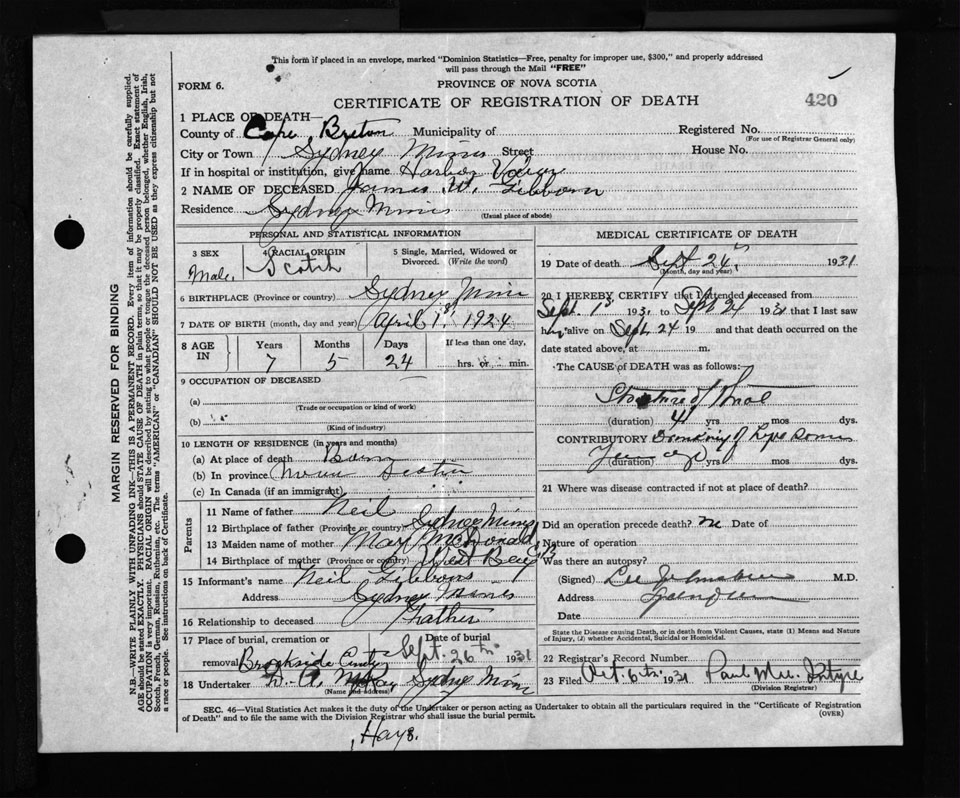 This form if placed in an envelope, marked "Dominion Statistics—Free, penalty for improper use, $300," and properly addressed
will pass through the Mail "FREE"
FORM 6.
PROVINCE OF NOVA SCOTIA
CERTIFICATE OF REGISTRATION OF DEATH
420
1 PLACE OF DEATH—
County of Cape Breton Municipality of Registered No.
(For use of Registrar General only)
City or Town Sydney Mines Street House No.
If in hospital or institution, give name Harbor View
2 NAME OF DECEASED James W. Gibbons
Residence Sydney Mines
(Usual place of abode)
PERSONAL AND STATISTICAL INFORMATION
3 SEX Male. 4 RACIAL ORIGIN Scotch 5 Single, Married, Widowed or Divorced. (Write the word)
6 BIRTHPLACE (Province or country) Sydney Mines
7 DATE OF BIRTH (month, day and year) April 1st 1924
8 AGE IN Years 7 Months 5 Days 24 If less than one day, hrs. or min.
9 OCCUPATION OF DECEASED
(a)
(Trade or occupation or kind of work)
(b)
(Kind of industry)
10 LENGTH OF RESIDENCE (in years and months)
(a) At place of death Born
(b) In province Nova Scotia
(c) In Canada (if an immigrant)
Parents
11 Name of father Neil
12 Birthplace of father (Province or country) Sydney Mines
13 Maiden name of mother Mary McDonald
14 Birthplace of mother (Province or country) West Bay C.B
15 Informant's name Neil Gibbons
Address Sydney Mines
16 Relationship to deceased Father
17 Place of burial, cremation or removal Brookside Date of burial Sept. 26th 1931
18 Undertaker D. A. Sydney Mines
(Name and address)
MEDICAL CERTIFICATE OF DEATH
19 Date of death Sept 24, 1931
(Month, day and year)
20 I HEREBY CERTIFY that I attended deceased from
Sept. 1st 1931 to Sept 24 1931 that I last saw
him alive on Sept. 24 19 and that death occurred on
date stated above, at m.
The CAUSE of DEATH was as follows:
Stricture of
(duration) 4 yrs mos dys.
CONTRIBUTORY Drinking of
(duration) yrs mos dys.
21 Where was disease contracted if not at place of death?
Did an operation precede death? no Date of
Nature of operation
Was there an autopsy?
(Signed) M.D.
Address
Date
State the Disease causing Death, or in death from Violent Causes, state (1) Means and Nature
of Injury, (2) whether Accidental, Suicidal or Homicidal.
22 Registrar's Record Number
23 Filed Oct. 6th 1931 Paul Mc Intyre
(Division Registrar)
SEC. 46—Vital Statistics Act makes it the duty of the Undertaker or person acting as Undertaker to obtain all the particulars required in the "Certificate of Registration
of Death" and to file the same with the Division Registrar who shall issue the burial permit.
(OVER)
Hays.
MARGIN RESERVED FOR BINDING
N.B.—WRITE PLAINLY WITH UNFADING INK—THIS IS A PERMANENT RECORD. Every item of information should be carefully supplied.
AGE should be stated EXACTLY. PHYSICIANS should STATE CAUSE OF DEATH in plain terms, so that it may be properly classified. Exact statement of
OCCUPATION is very important. RACIAL ORIGIN will be described by stating to what people or tongue the deceased person belonged, whether English, Irish,
Scotch, French, German, Russian, Ruthenian, etc. The terms "AMERICAN" or "CANADIAN" SHOULD NOT BE USED as they express citizenship but not
a race or people. See instructions on back of Certificate.